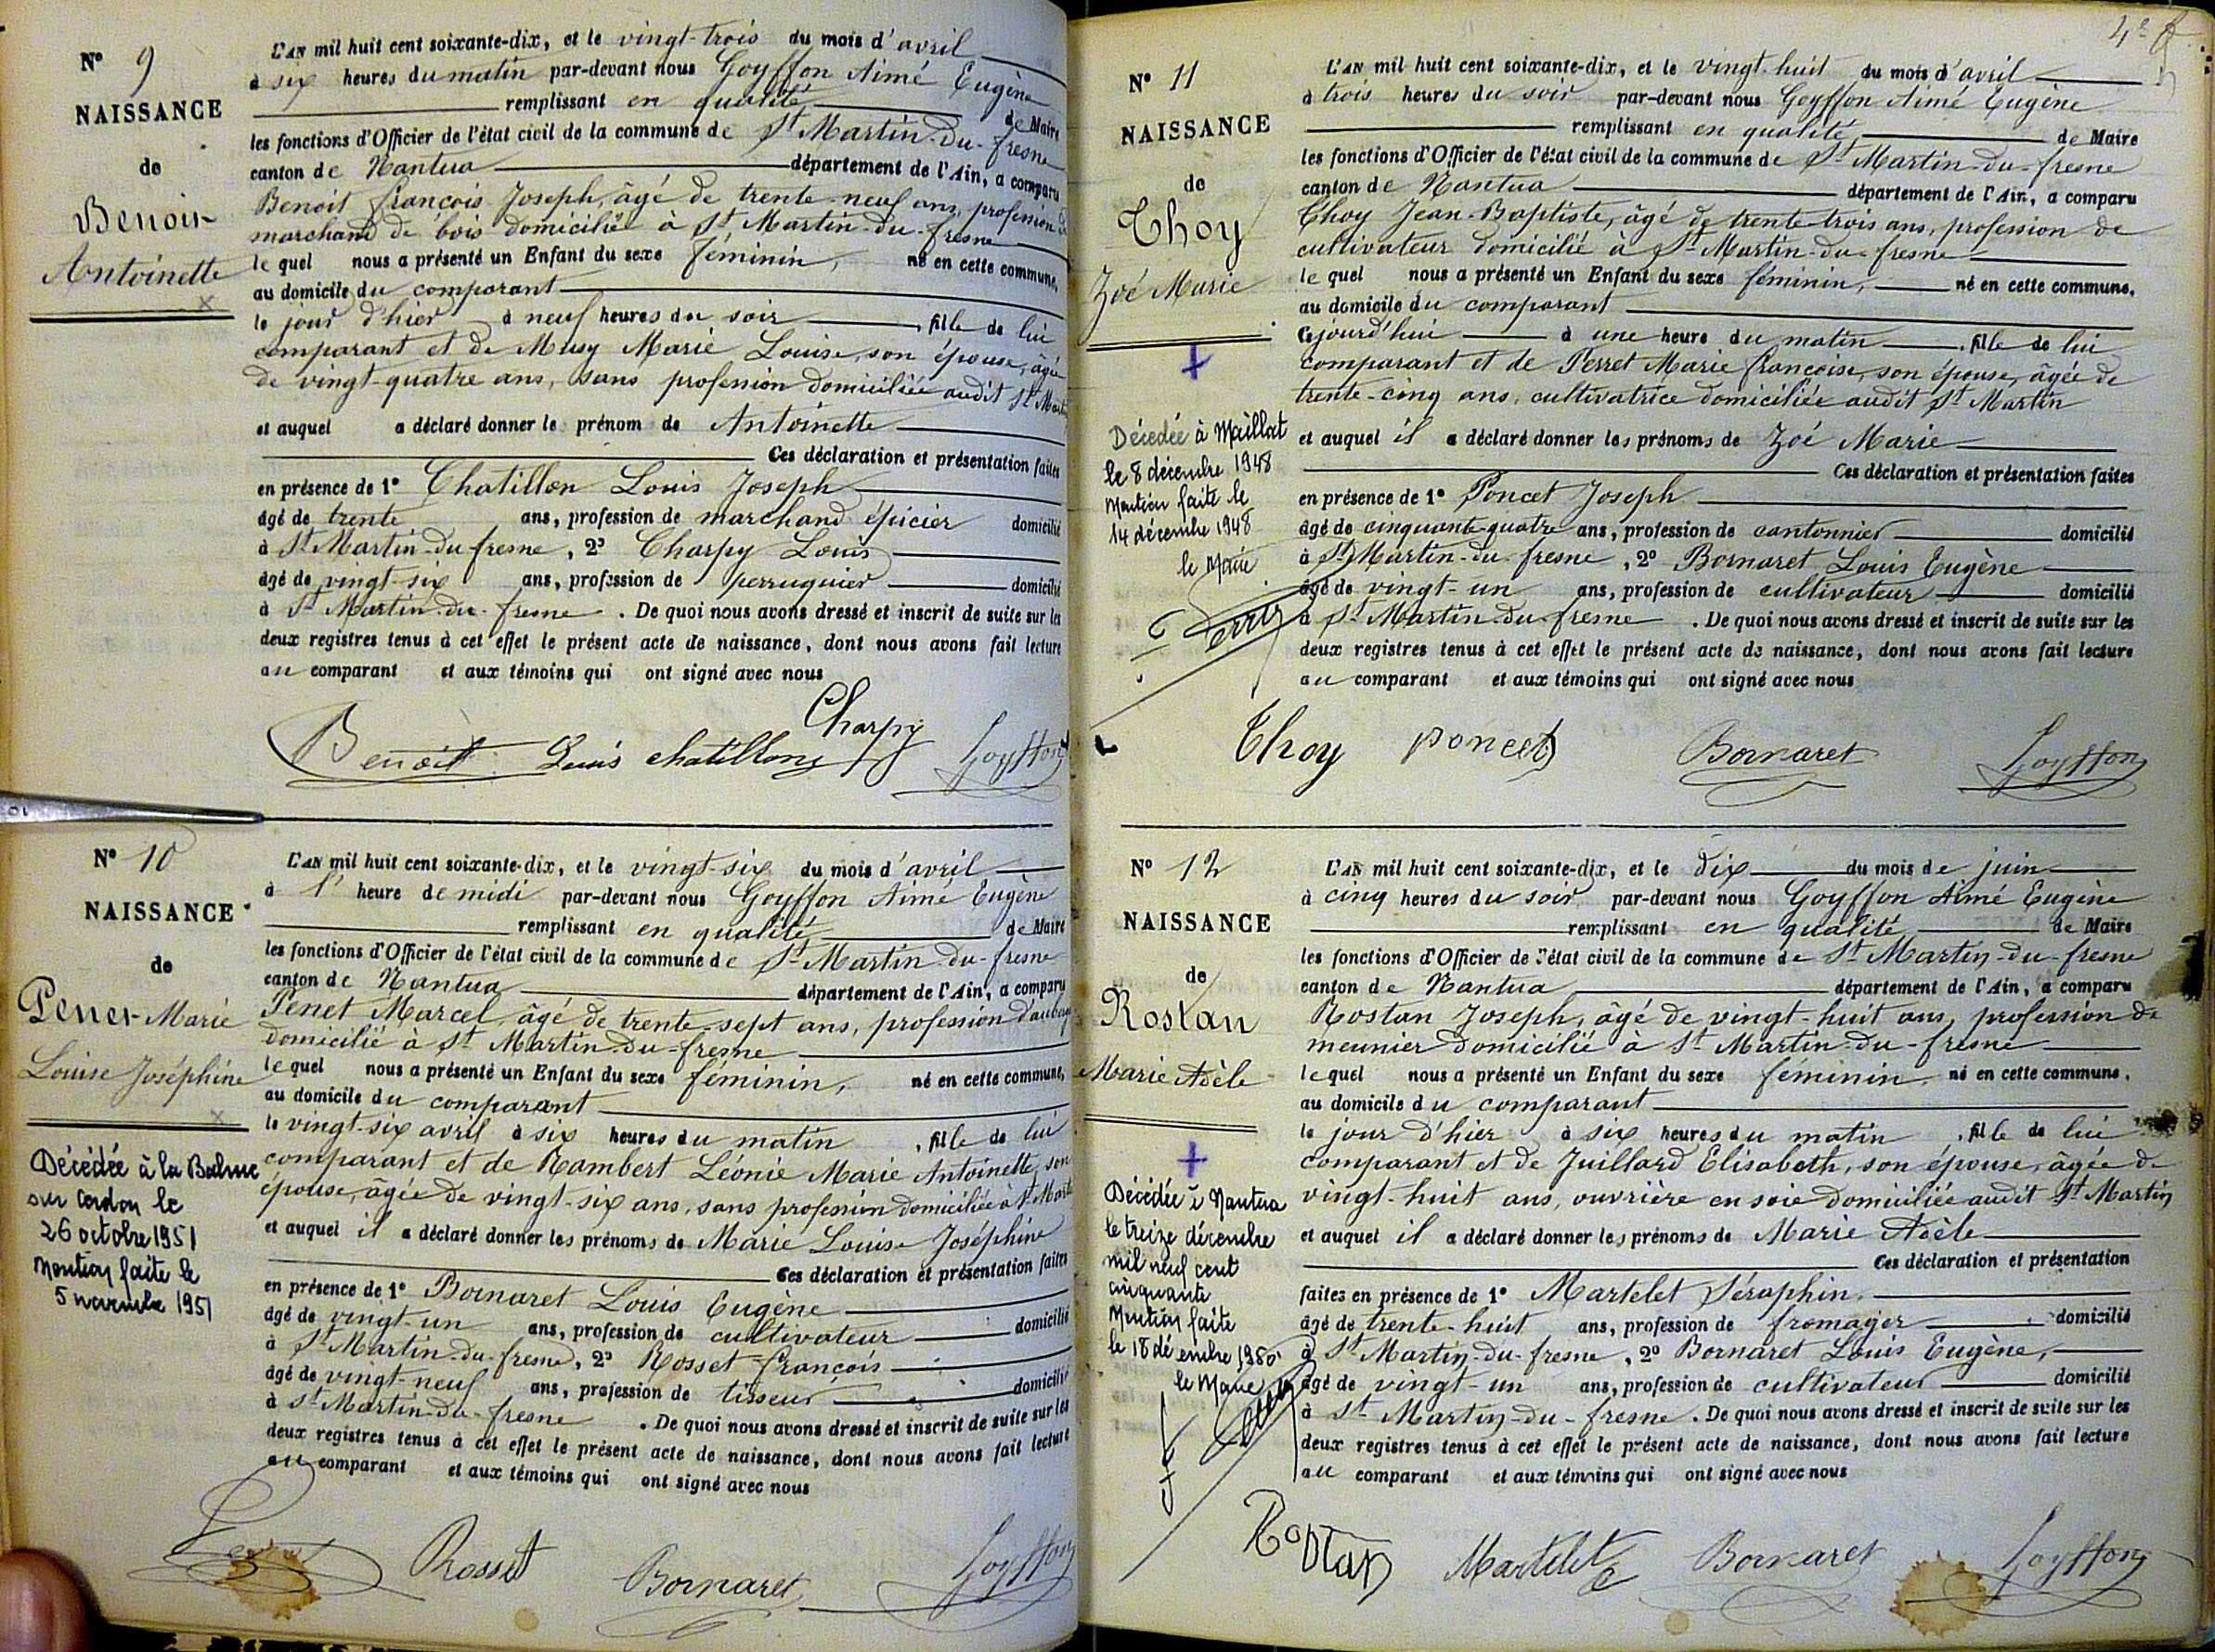 N° 9
NAISSANCE
de
Benoit
Antoinette
L'AN mil huit cent soixante-dix, et le vingt-trois du mois d'avril
à six heures du matin par-devant nous Goyffon Aimé Eugène
remplissant en qualité de Maire
les fonctions d'Officier de l'état civil de la commune de St Martin-du-fresne
canton de Nantua département de l'Ain, a comparu
Benoit françois Joseph, âgé de trente-neuf ans, profession de
marchand de bois domicilié à St Martin-du-fresne
le quel nous a présenté un Enfant du sexe féminin, né en cette commune,
au domicile du comparant
le jour d'hier à neuf heures du soir, fille de lui
comparant et de Musy Marie Louise, son épouse, âgée
de vingt-quatre ans, sans profession domiciliée audit St Martin
et auquel a déclaré donner le prénom de Antoinette
Ces déclaration et présentation faites
en présence de 1° Chatillon Louis Joseph
âgé de trente ans, profession de marchand épicier domicilié
à St Martin-du-fresne, 2° Charpy Louis
âgé de vingt-six ans, profession de perruquier domicilié
à St Martin-du-fresne. De quoi nous avons dressé et inscrit de suite sur les
deux registres tenus à cet effet le présent acte de naissance, dont nous avons fait lecture
au comparant et aux témoins qui ont signé avec nous
Charpy
Benoit Louis chatillon Goyffon
N° 10
NAISSANCE
de
Penet Marie
Louise Joséphine
Décédée à la Balme
sur Cerdon le
26 octobre 1951
Mention faite le
5 novembre 1951
L'AN mil huit cent soixante-dix, et le vingt-six du mois d'avril
à 1' heure de midi par-devant nous Goyffon Aimé Eugène
remplissant en qualité de Maire
les fonctions d'Officier de l'état civil de la commune de St Martin-du-fresne
canton de Nantua département de l'Ain, a comparu
Penet Marcel, âgé de trente-sept ans, profession
domicilié à St Martin-du-fresne
le quel nous a présenté un Enfant du sexe féminin, né en cette commune,
au domicile du comparant
le vingt-six avril à six heures du matin, fille de lui
comparant et de Rambert Léonie Marie Antoinette, son
épouse, âgée de vingt-six ans, sans profession domiciliée à St Martin
et auquel il a déclaré donner les prénoms de Marie Louise Joséphine
Ces déclaration et présentation faites
en présence de 1° Bornaret Louis Eugène
âgé de vingt-un ans, profession de cultivateur domicilié
à St Martin-du-fresne, 2° Rosset françois
âgé de vingt-neuf ans, profession de tisseur domicilié
à St Martin-du-fresne. De quoi nous avons dressé et inscrit de suite sur les
deux registres tenus à cet effet le présent acte de naissance, dont nous avons fait lecture
au comparant et aux témoins qui ont signé avec nous
Rosset Bornaret Goyffon
N° 11
NAISSANCE
de
Thoy
Zoé Marie
+
Décédée à Maillat
le 8 décembre 1948
Mention faite le
14 décembre 1948
le Maire
L'AN mil huit cent soixante-dix, et le vingt-huit du mois d'avril
à trois heures du soir par-devant nous Goyffon Aimé Eugène
remplissant en qualité de Maire
les fonctions d'Officier de l'état civil de la commune de St Martin-du-fresne
canton de Nantua département de l'Ain, a comparu
Thoy Jean-Baptiste, âgé de trente-trois ans, profession de
cultivateur domicilié à St Martin-du-fresne
le quel nous a présenté un Enfant du sexe féminin, né en cette commune,
au domicile du comparant
Cejourd'hui à une heure du matin, fille de lui
comparant et de Perret Marie françoise, son épouse, âgée de
trente-cinq ans, cultivatrice domiciliée audit St Martin
et auquel il a déclaré donner les prénoms de Zoé Marie
Ces déclaration et présentation faites
en présence de 1° Poncet Joseph
âgé de cinquante-quatre ans, profession de cantonnier domicilié
à St Martin-du-fresne, 2° Bornaret Louis Eugène
âgé de vingt-un ans, profession de cultivateur domicilié
à St Martin-du-fresne. De quoi nous avons dressé et inscrit de suite sur les
deux registres tenus à cet effet le présent acte de naissance, dont nous avons fait lecture
au comparant et aux témoins qui ont signé avec nous
Thoy poncet Bornaret Goyffon
N° 12
NAISSANCE
de
Rostan
Marie Adèle
+
Décédée à Nantua
le treize décembre
mil neuf cent
cinquante
Mention faite
le 18 décembre 1950
le Maire
L'AN mil huit cent soixante-dix, et le dix du mois de juin
à cinq heures du soir par-devant nous Goyffon Aimé Eugène
remplissant en qualité de Maire
les fonctions d'Officier de l'état civil de la commune de St Martin-du-fresne
canton de Nantua département de l'Ain, a comparu
Rostan Joseph, âgé de vingt-huit ans, profession de
meunier domicilié à St Martin-du-fresne
le quel nous a présenté un Enfant du sexe féminin, né en cette commune,
au domicile du comparant
le jour d'hier à six heures du matin, fille de lui
comparant et de Juillard Elisabeth, son épouse, âgée de
vingt-huit ans, ouvrière en soie domiciliée audit St Martin
et auquel il a déclaré donner les prénoms de Marie Adèle
Ces déclaration et présentation
faites en présence de 1° Martelet Séraphin
âgé de trente-huit ans, profession de fromager domicilié
à St Martin-du-fresne, 2° Bornaret Louis Eugène,
âgé de vingt-un ans, profession de cultivateur domicilié
à St Martin-du-fresne. De quoi nous avons dressé et inscrit de suite sur les
deux registres tenus à cet effet le présent acte de naissance, dont nous avons fait lecture
au comparant et aux témoins qui ont signé avec nous
Rostan Martelet Bornaret Goyffon